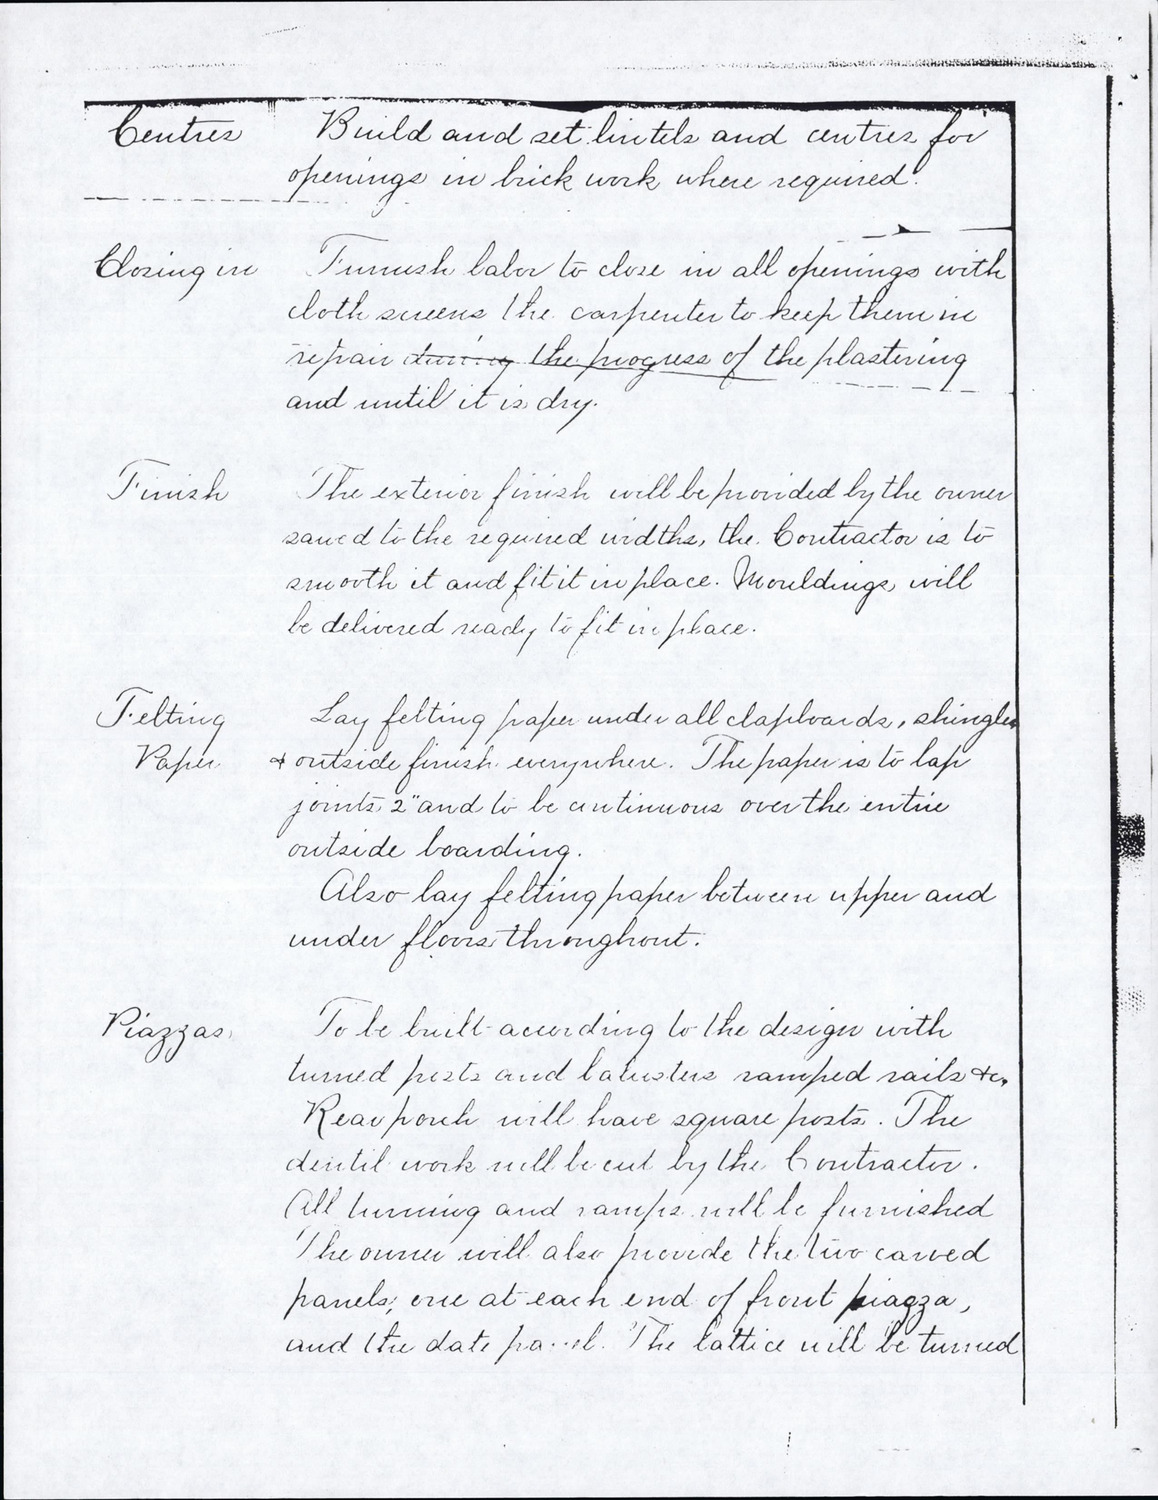 Centres Build and set lintels and centres for
openings in brick work where required.
Closing in Furnish labor to close in all openings with
cloth screens the carpenter to keep them in
repair during the progress of the plastering
and until it is dry.
Finish The exterior finish will be provided by the owner
sawed to the required widths, the Contractor is to
smooth it and fit it in place. Mouldings will
be delivered ready to fit in place.
Felting Lay felting paper under all clapboards, shingles
Paper & outside finish everywhere. The paper is to lap
joints 2" and to be continuous over the entire
outside boarding.
Also lay felting paper between upper and
under floors throughout.
Piazzas To be built according to the design with
turned posts and balusters ramped rails &c.
Rear porch will have square posts. The
dentil work will be cut by the Contractor.
All turning and ramps will be furnished
The owner will also provide the two carved
panels, one at each end of front piazza,
and the date panel. The lattice will be turned